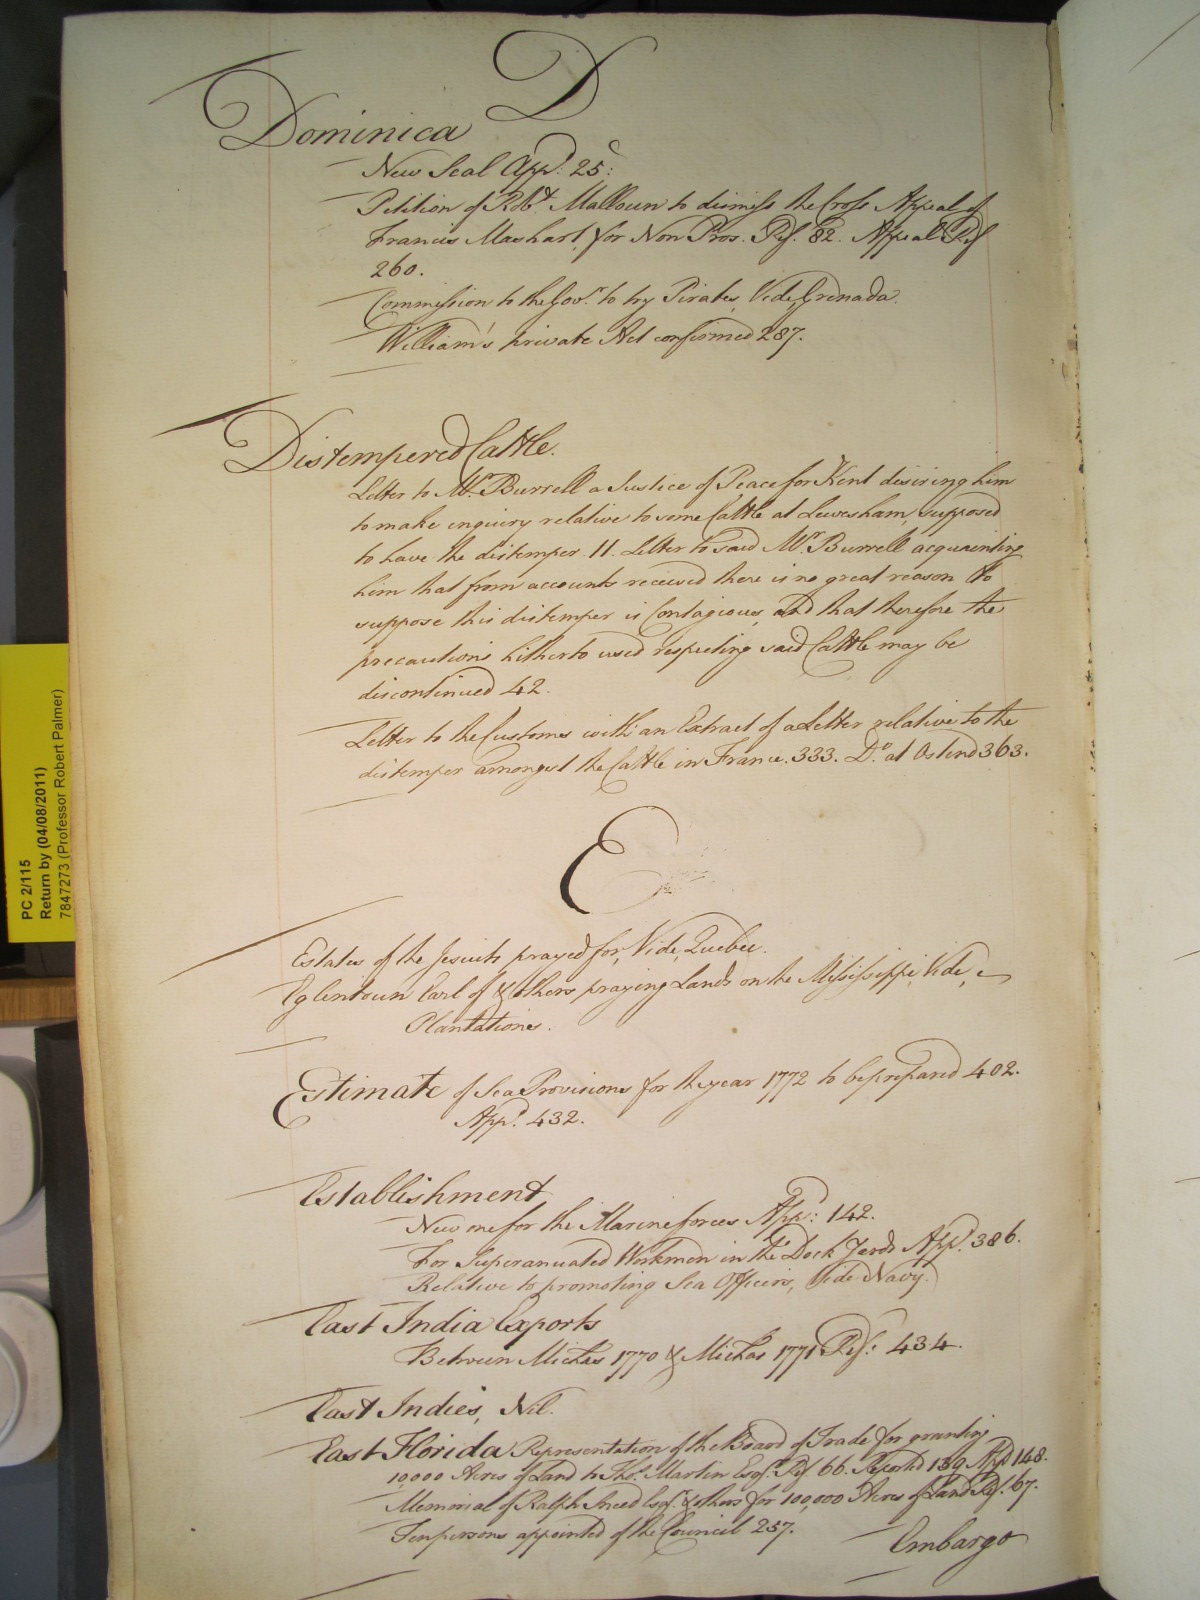 D
Dominica
New Seal App.d 25.
Petition of Rob.t Malloun to dismiss the Cross Appeal of
Francis Mashart, for Non Pros. Ref. 82. Appeal Ref
260.
Commission to the Gov.r to try Pirates, Vide, Grenada.
William's private Act confirmed 287.
Distempered Cattle.
Letter to M.r Burrell a Justice of Peace for Kent desiring him
to make inquiry relative to some Cattle at Lewesham, supposed
to have the distemper. 11. Letter to said M.r Burrell acquainting
him that from accounts received there is no great reason to
suppose this distemper is Contagious, and that therefore the
precautions hitherto used respecting said Cattle may be
discontinued 42.
Letter to the Customs with an Extract of a Letter relative to the
distemper amongst the Cattle in France. 333. D.o at Ostend 363.
E
Estates of the Jesuits prayed for, Vide, Quebec.
Eglentoun Earl of & others praying Lands on the Mississippi, Vide,
Plantations.
Estimate of Sea Provisions for the year 1772 to be prepared 402.
App.d 432.
Establishment
New one for the Marine forces App.d: 142.
For Superanuated Workmen in the Dock Yards App.d 386.
Relative to promoting Sea Officers, Vide Navy.
East India Exports
Between Michas 1770 & Michas 1771 Ref.d 434.
East Indies, Nil.
East Florida Representation of the Board of Trade for granting
10,000 Acres of Land to Tho.s Martin Esq.r Ref 66. Reported 139 App.d 148.
Memorial of Ralph Sneed Esq.r & others for 100,000 Acres of Land Ref. 67.
Ten persons appointed of the Council 257.
Embargo
PC 2/115
Return by (04/08/2011)
7847273 (Professor Robert Palmer)